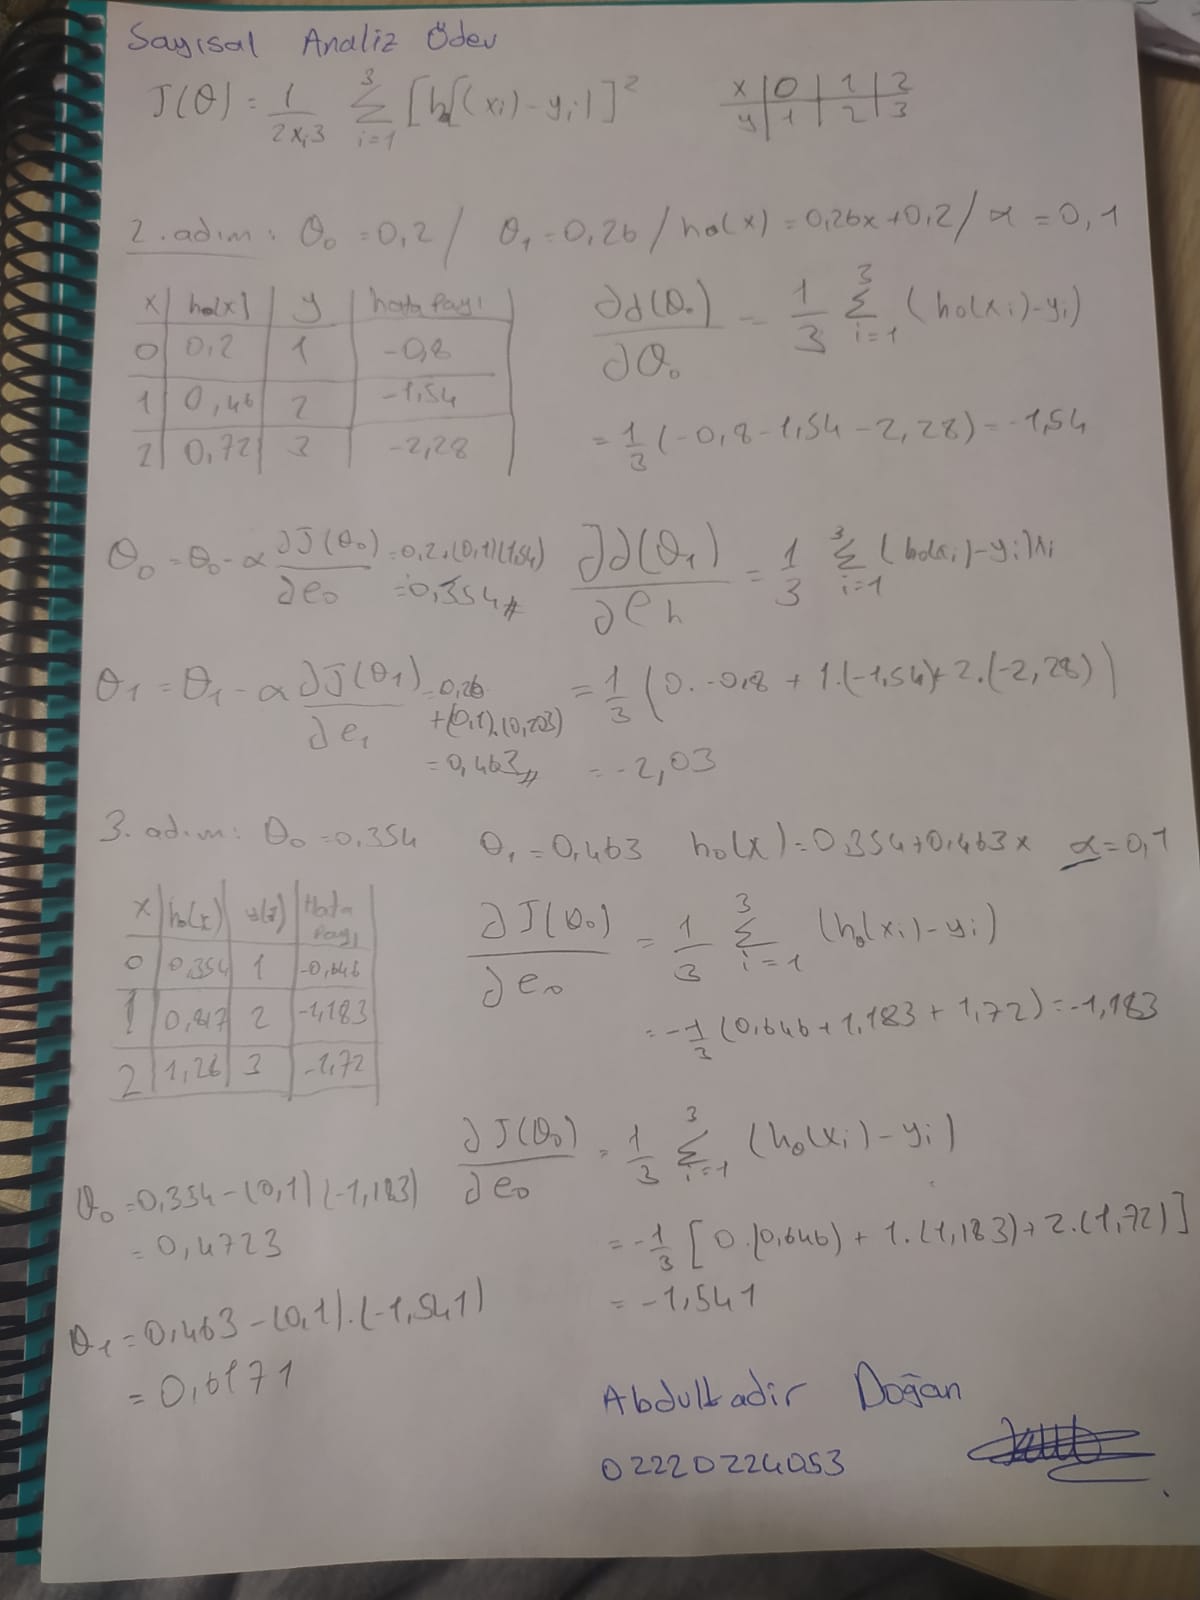 Sayısal Analiz Ödev
J(θ) = 1/2x3 Σ(i=1, 3) [hθ(xi) - yi)]²
x | 0 | 1 | 2
y | 1 | 2 | 3
2. adım: θ₀ = 0,2 / θ₁ = 0,26 / hθ(x) = 0,26x+0,2 / α = 0,1
x | hθ(x) | y | hata Payı
0 | 0,2 | 1 | -0,8
1 | 0,46 | 2 | -1,54
2 | 0,72 | 3 | -2,28
∂J(θ₀)/∂θ₀ = 1/3 Σ(i=1, 3) (hθ(xi)-yi)
= 1/3 (-0,8-1,54-2,28) = -1,54
θ₀ = θ₀ - α ∂J(θ₀)/∂θ₀ = 0,2+(0,1)(1,54)
= 0,354 //
∂J(θ₁)/∂θ₁ = 1/3 Σ(i=1, 3) (hθ(xi)-yi)xi
θ₁ = θ₁ - α ∂J(θ₁)/∂θ₁ = 0,26
+(0,1).(0,203)
= 0,463 //
= 1/3 (0.-0,8 + 1.(-1,54)+2.(-2,28))
= -2,03
3. adım: θ₀ = 0,354 θ₁ = 0,463 hθ(x) = 0,354+0,463x α = 0,1
x | hθ(x) | y(x) | Hata Payı
0 | 0,354 | 1 | -0,646
1 | 0,817 | 2 | -1,183
2 | 1,28 | 3 | -1,72
∂J(θ₀)/∂θ₀ = 1/3 Σ(i=1, 3) (hθ(xi)-yi)
= -1/3 (0,646+1,183+1,72) = -1,183
∂J(θ₀)/∂θ₀ = 1/3 Σ(i=1, 3) (hθ(xi)-yi)
= -1/3 [0.(0,646) + 1.(1,183)+2.(1,72)]
= -1,541
θ₀ = 0,354-(0,1)(-1,183)
= 0,4723
θ₁ = 0,463-(0,1).(-1,541)
= 0,6171
Abdulkadir Doğan
02220224053